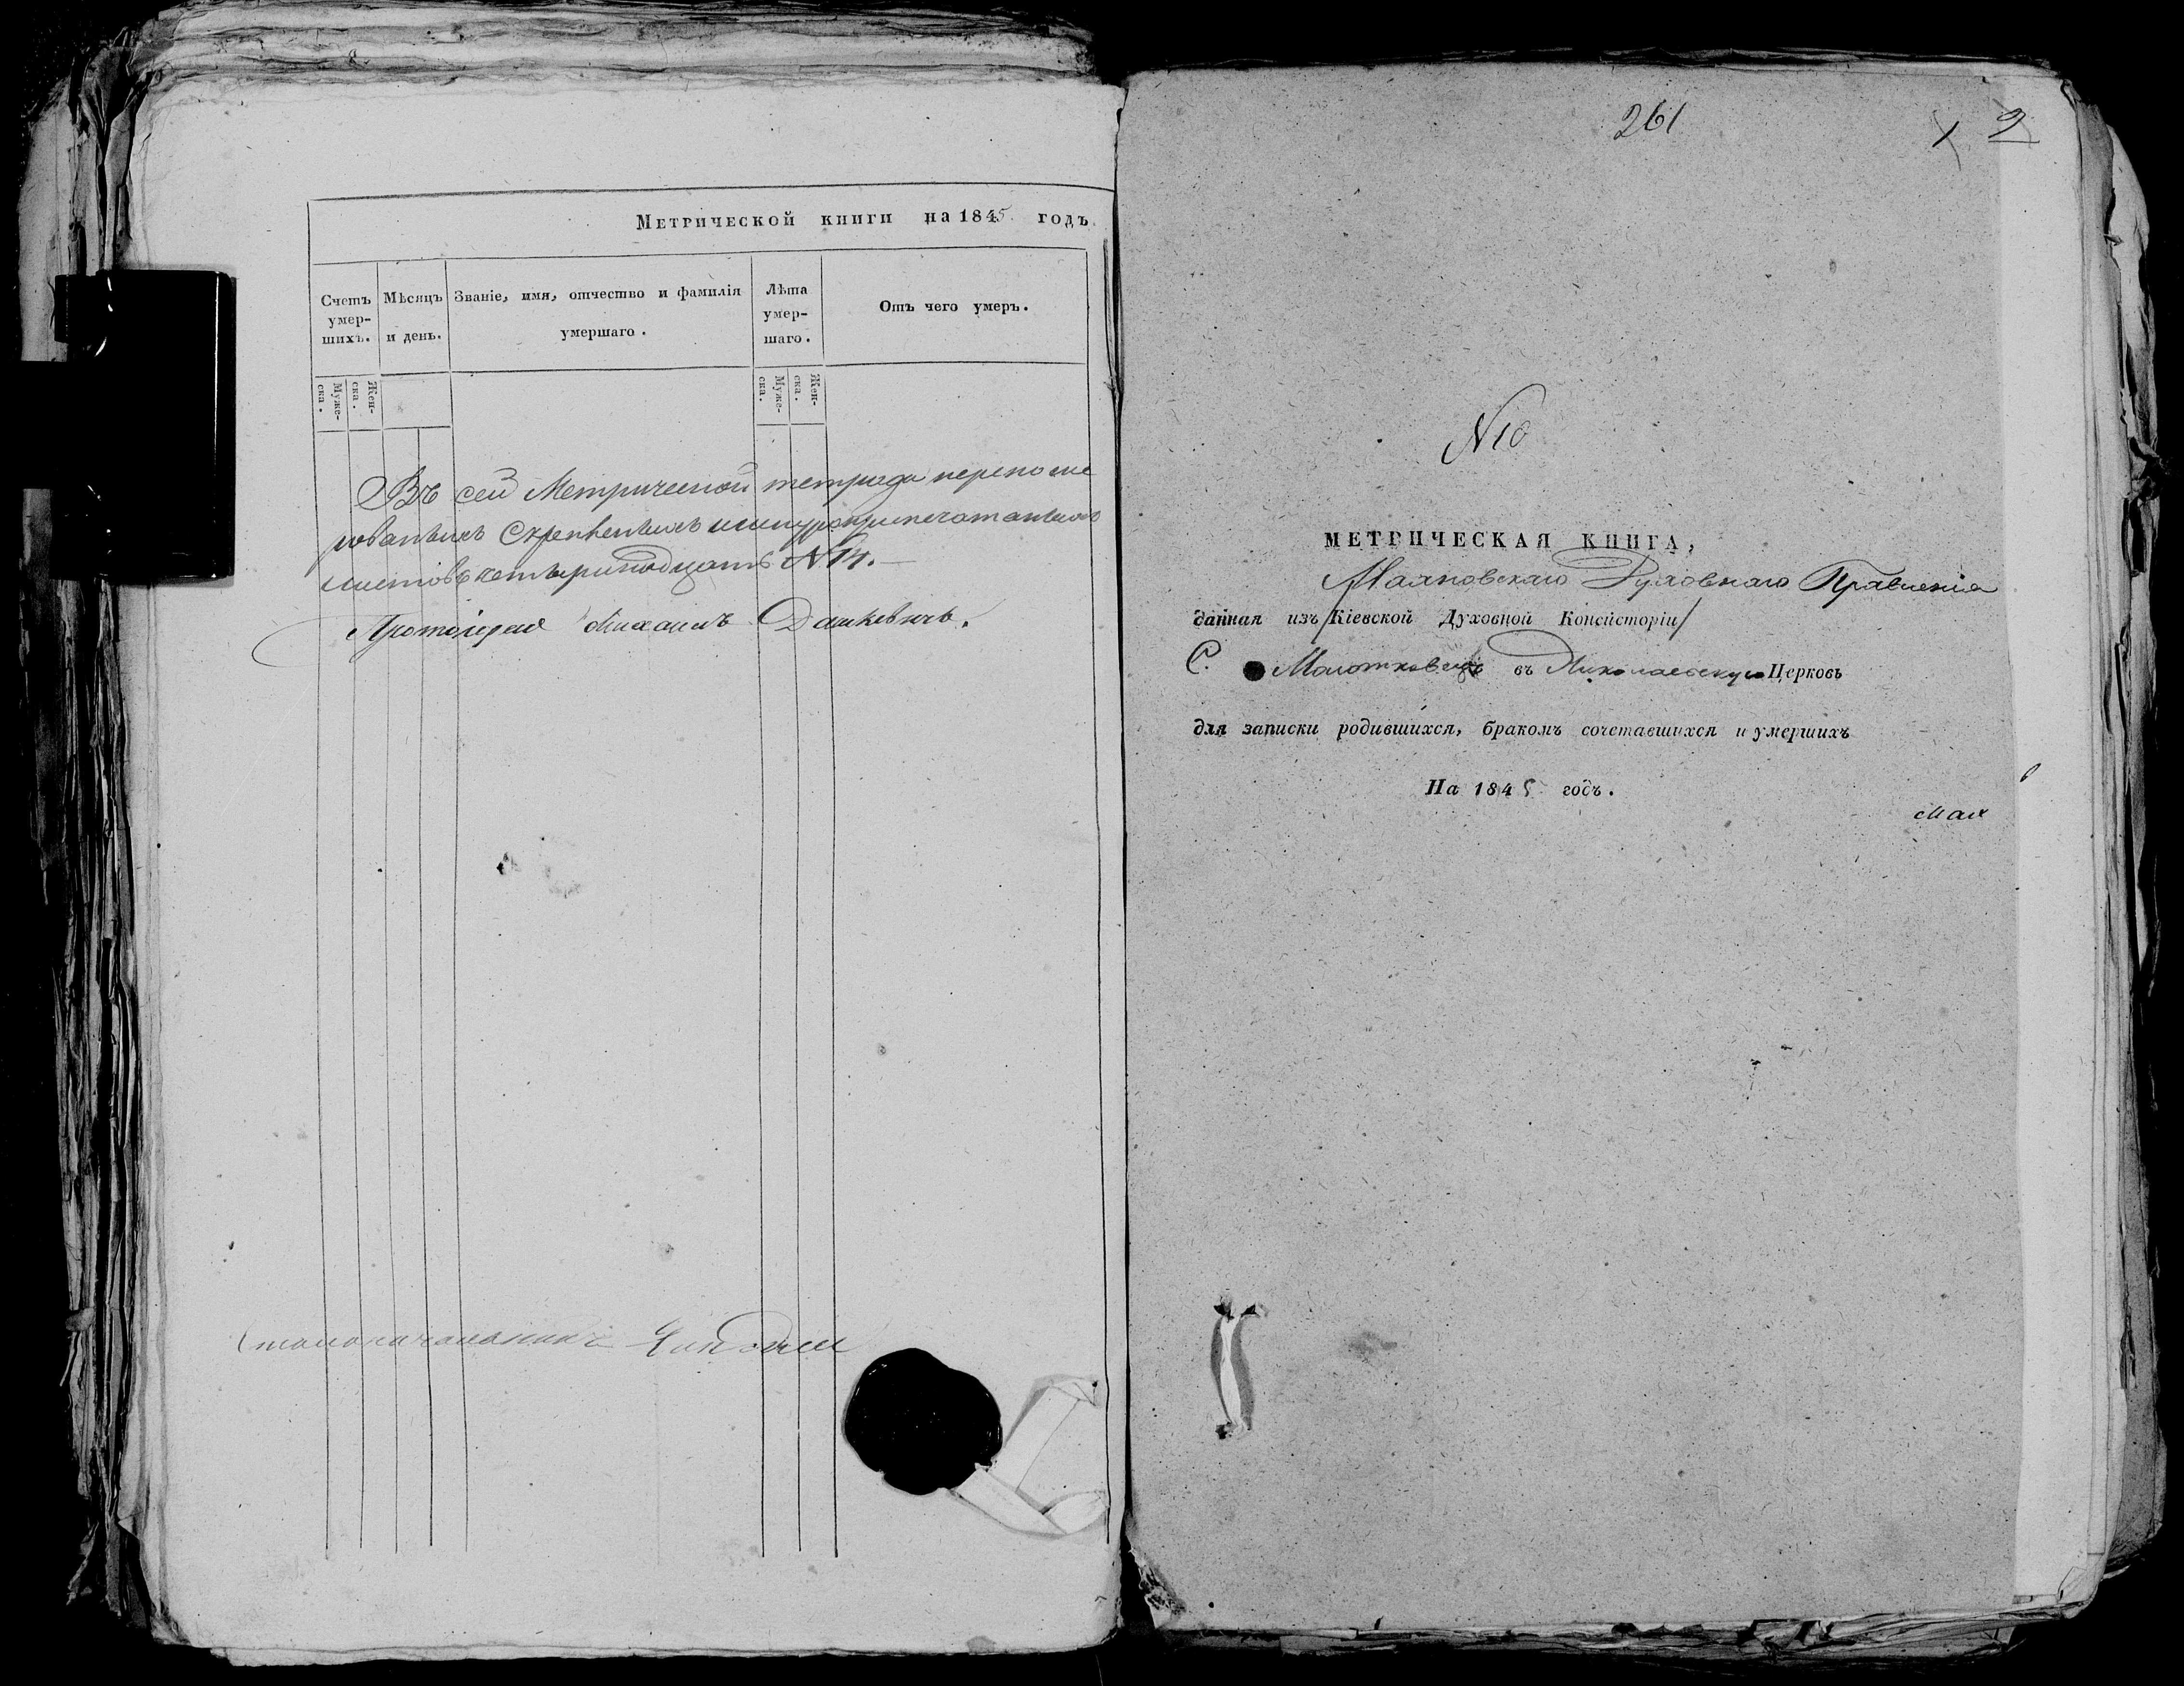 Метрической книги на 1845 годъ
Счетъ умер-шихъ.
Мѣсяцъ и день.
Званіе, имя, отчество и фамилія умершаго.
Лѣта умер-шаго.
Отъ чего умеръ.
Муже-ска.
Жен-ска.
Муже-ска.
Жен-ска.
Въ сей Метрической тетради перенуме
рованныхъ скрепленныхъ
листовъ четырнадцать N 14.
Протоіерей Михаилъ Дашкевичъ.
Столоначальникъ
261
1 2
N 10
МЕТРИЧЕСКАЯ КНИГА,
Духовнаго Правленія
данная изъ Кіевской Духовной Консисторіи
С. въ Николаевскую Церковь
для записки родившихся, бракомъ сочетавшихся и умершихъ
На 1845 годъ.